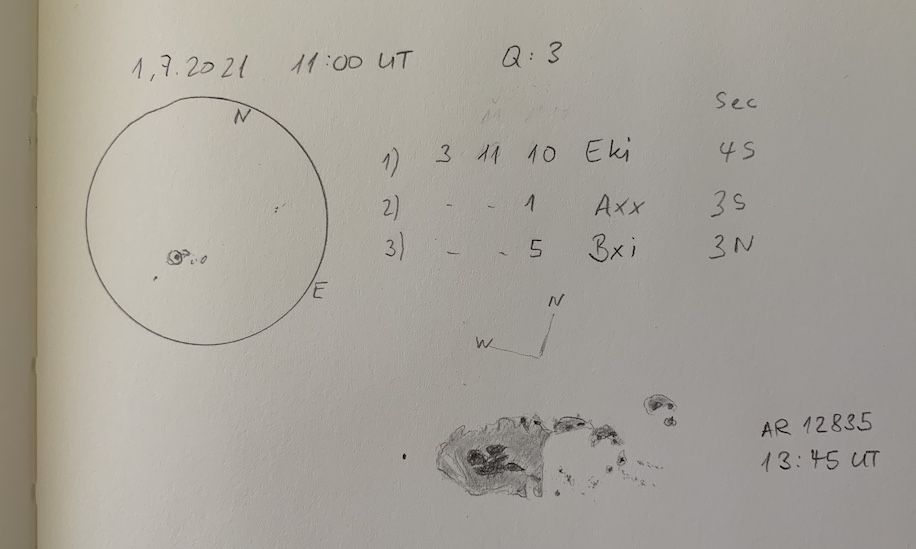 1,7.2021 11:00 UT Q: 3
Sec
N
1) 3 11 10 Eki 4S
2) - - 1 Axx 3S
3) - - 5 Bxi 3N
E
N
W
AR 12835
13:45 UT